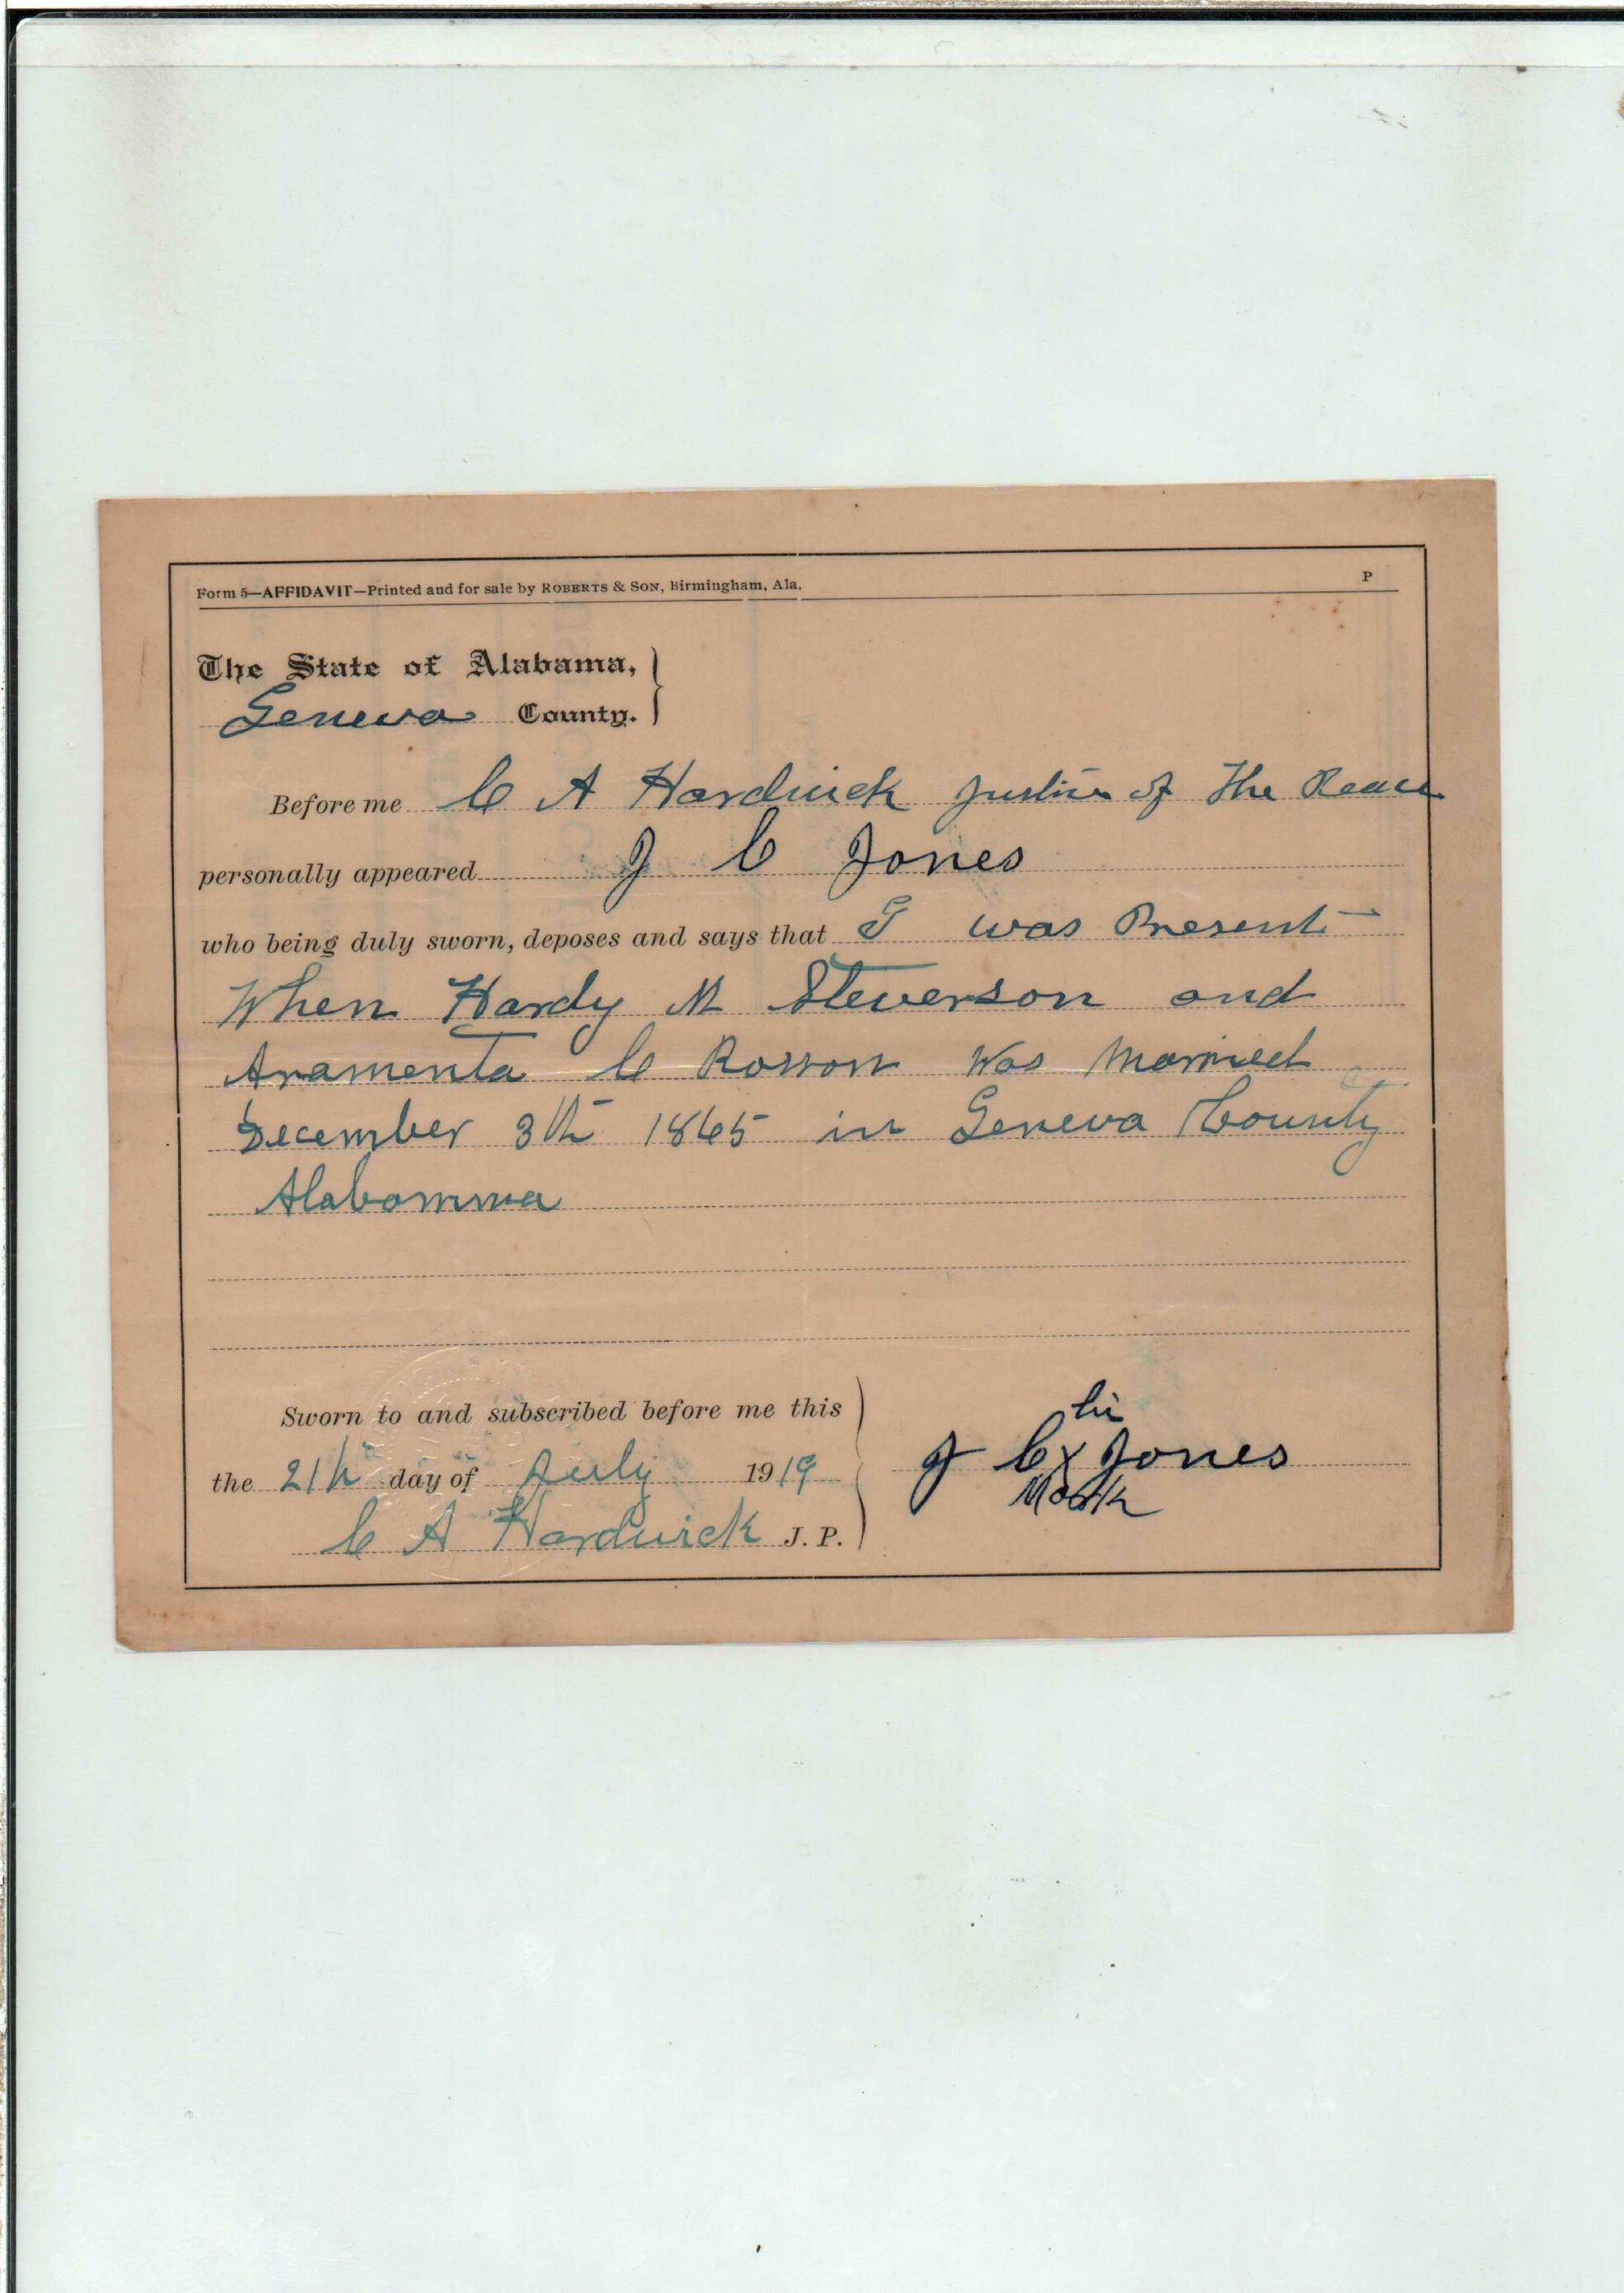 Form 5—AFFIDAVIT—Printed and for sale by ROBERTS & SON, Birmingham, Ala. P
The State of Alabama,
Geneva County.
Before me C A Hardwick Justice of The Peace
personally appeared J C Jones
who being duly sworn, deposes and says that I was Present
When Hardy M Steverson and
Aramenta C Rosson Was Married
December 3th 1865 in Geneva County
Alabamma
Sworn to and subscribed before me this
the 21th day of July 1919
C A Hardwick J. P.
his
J C X Jones
Mark